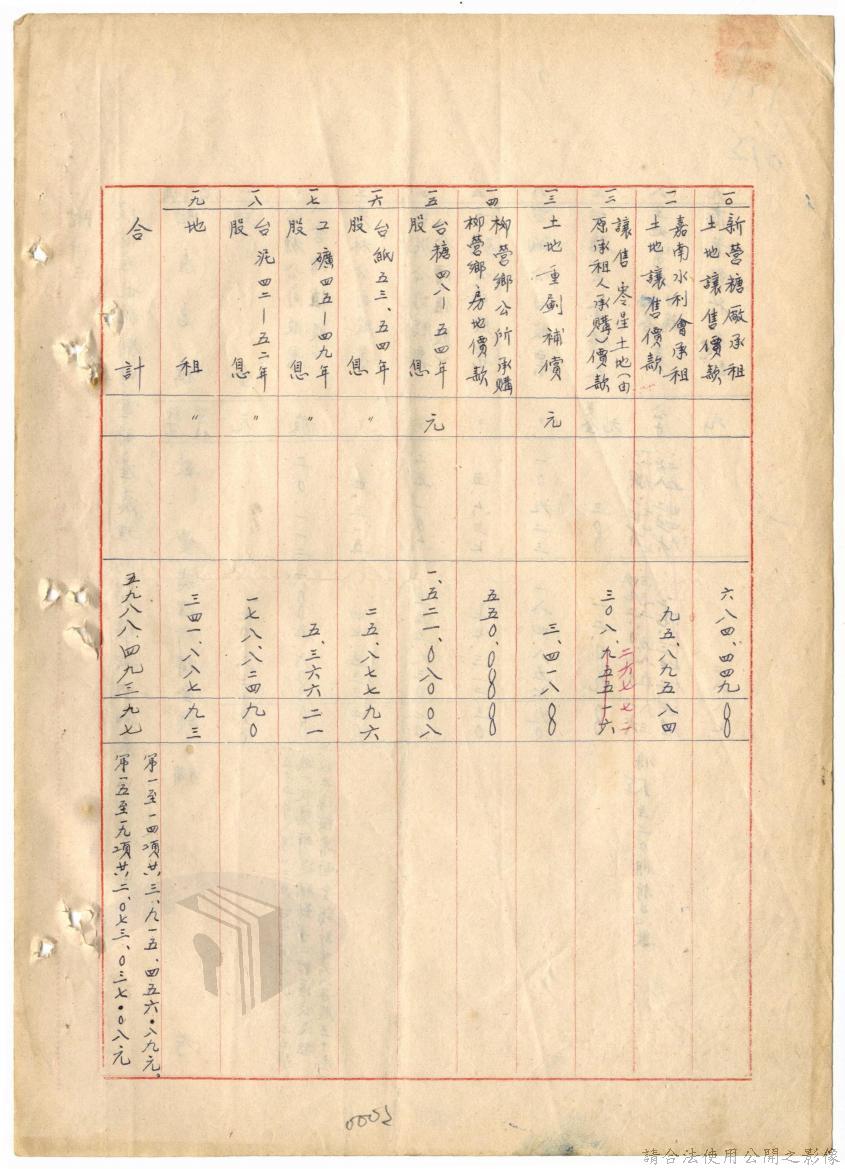 一〇
新營糖廠承租
土地讓售價款
六八四、四四九
00
一一
嘉南水利會承租
土地讓售價款
九五、八九五
八四
一二
讓售零星土地(由
原承租人承購)價款
三〇八、九五五
一六
一三
土地重劃補償
元
三、四一八
00
一四
柳營鄉公所承購
柳營鄉房地價款
五五0、000
00
一五
台糖四八—五四年
股息
元
一、五二一、0八0
0八
一六
台紙五三、五四年
股息
〃
二五、八七七
九六
一七
工礦四五—四九年
股息
〃
五、三六六
二一
一八
台泥四二—五二年
股息
〃
一七八、八二四
九0
一九
地租
〃
三四一、八八七
九三
合計
五、九八八、四九三
九七
第一至一四項共三、九一五、四五六•八九元,
第一五至一九項共二、0七三、0三七•0八元
請合法使用公開之影像